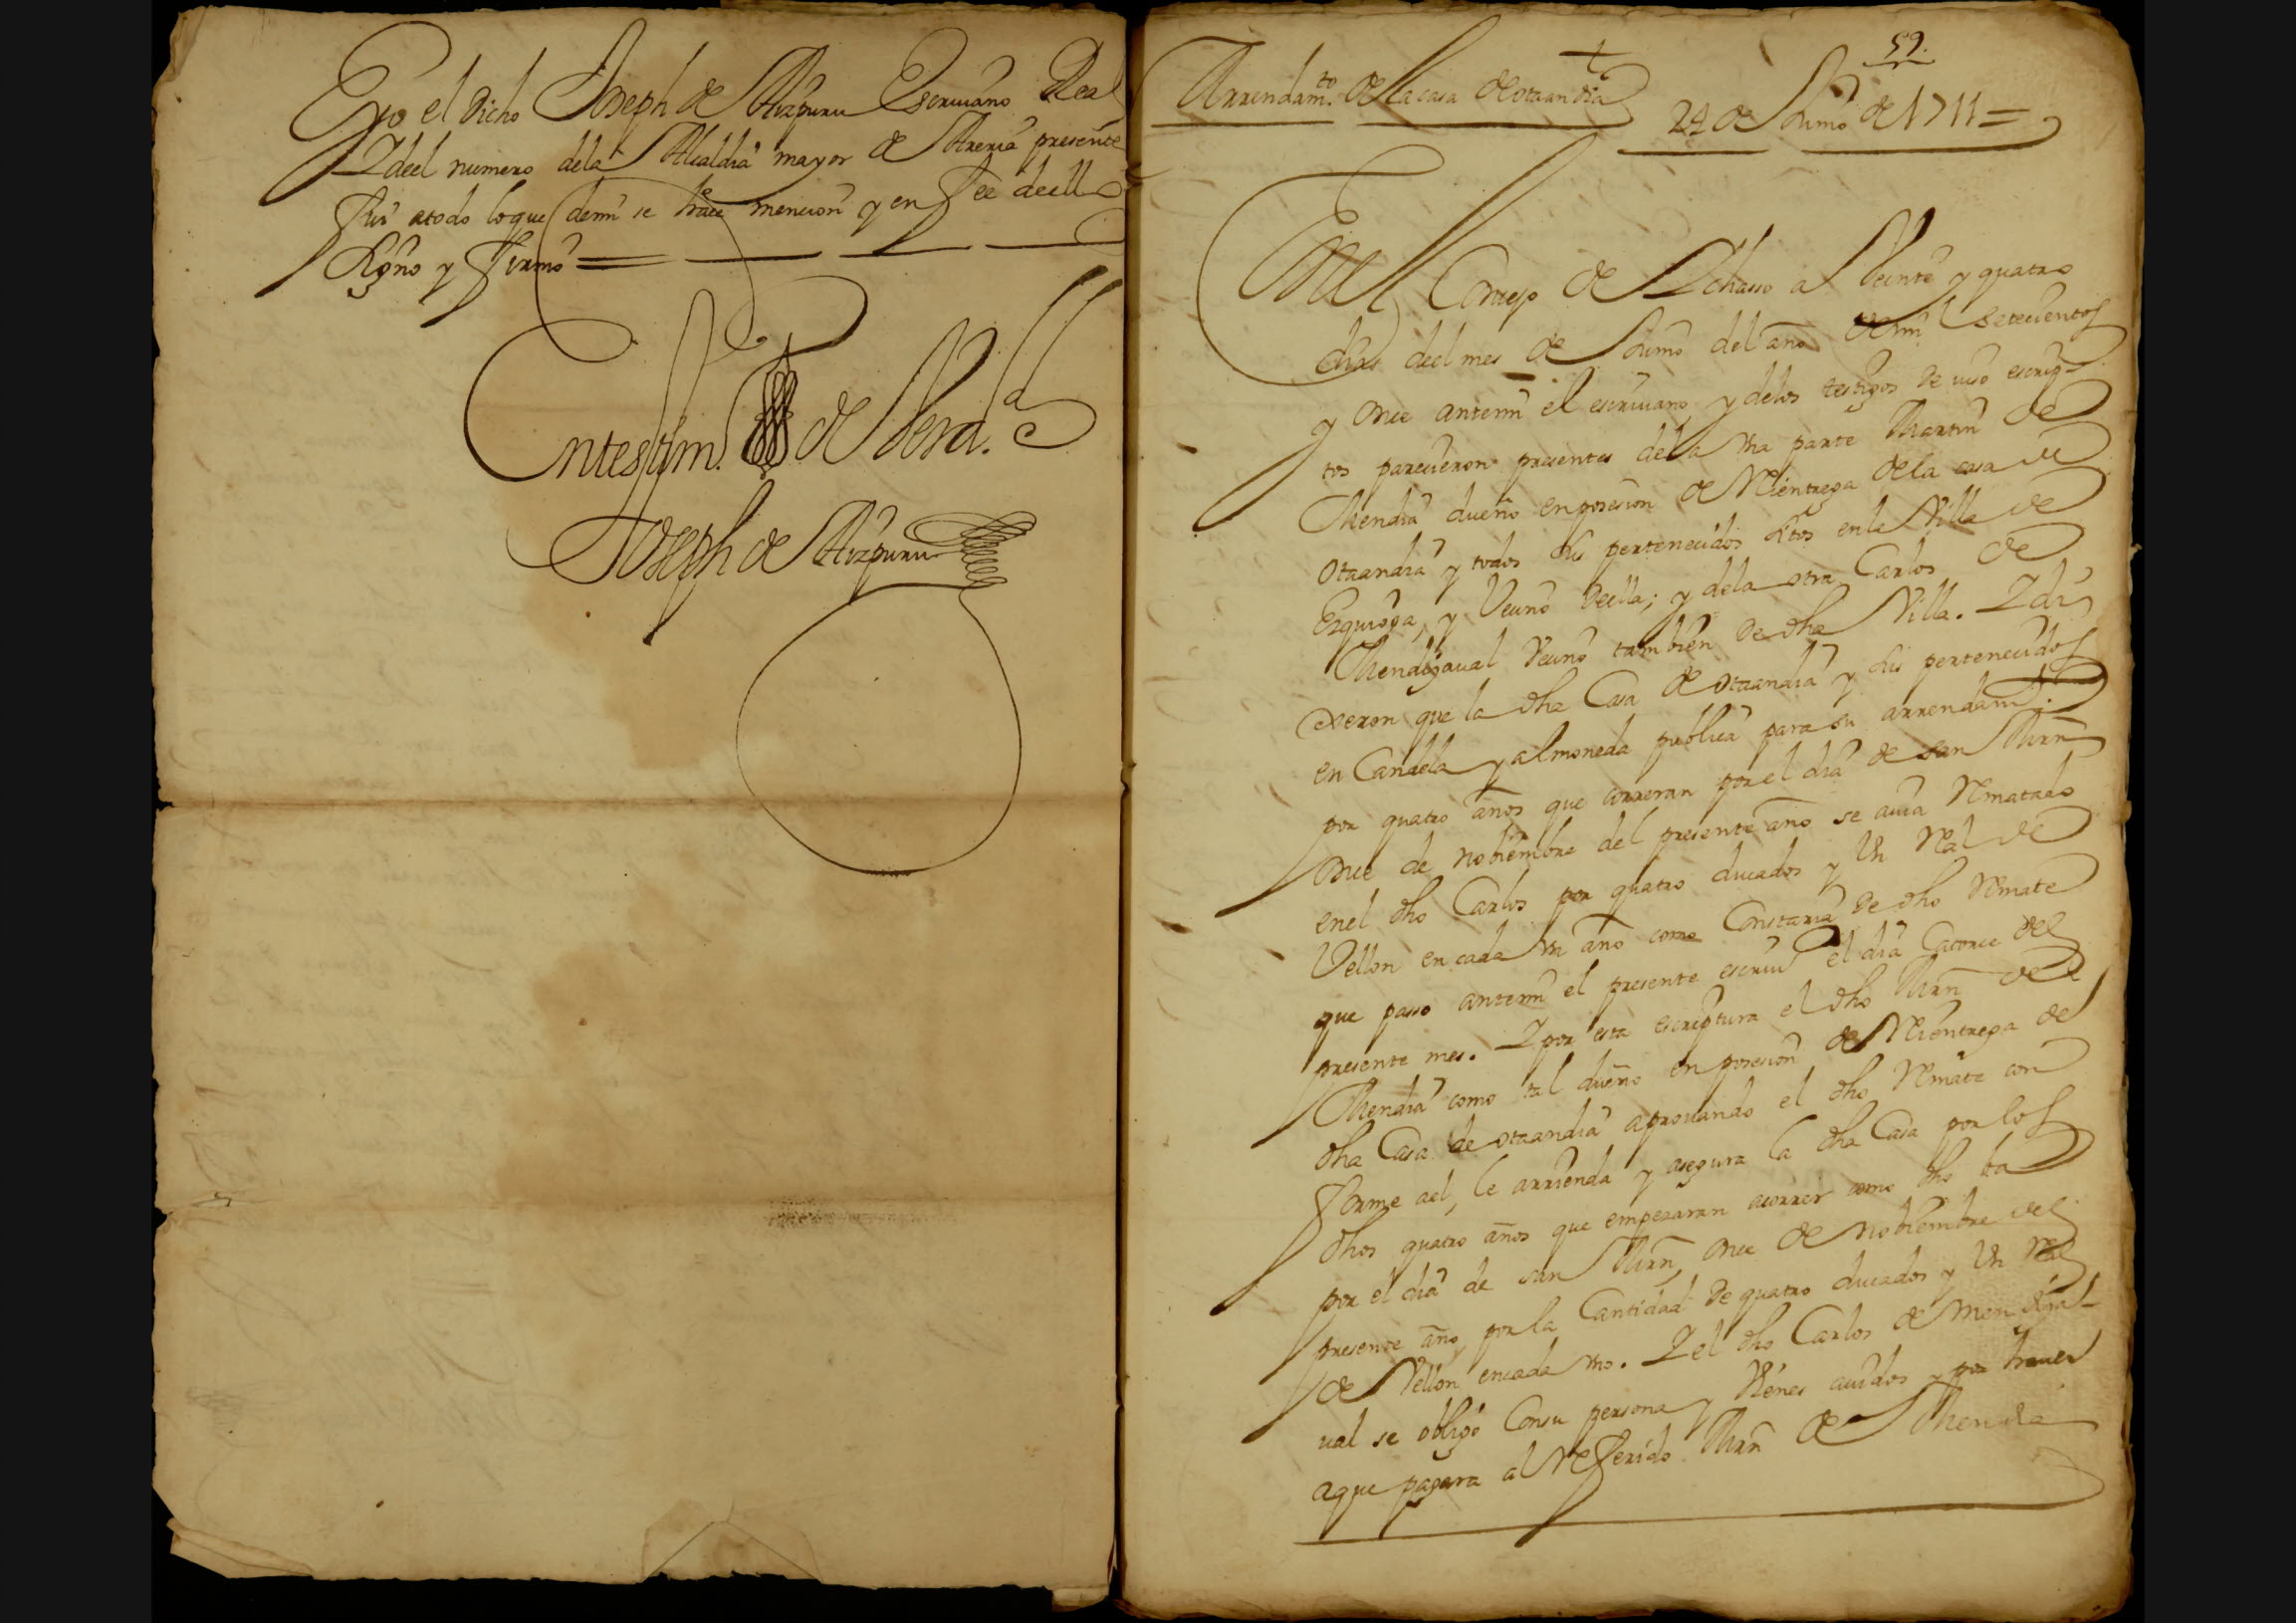 Eyo el dicho Joseph de Aizpuru Escriuano Real
Y deel numero dela Alcaldia mayor de Areria presente
fui atodo loque demi se haçe mencion y en fee deello
Signo y firmo =
Entestim.º de Verd.d
Joseph de Aizpuru
59.
Arrendam.to de la casa de otaandia
24 de Junio de 1711 =
En el Conzejo de Ychasso a Veinte y quatro
dias deel mes de Junio del año de mil setecientos
y once antemi el escriuano y delos testigos de iuso escrip-
tos parecieron presentes dela vna parte Martin de
Mendia dueño en posesion de Reientrega de la casa de
otaandia y todos sus pertenecidos sitos enla Villa de
Ezquioga, y Vecino deella; y dela otra Carlos de
Mendizaual Vecino tambien de dha Villa. Y di
xeron que la dha Casa de otaandia y sus pertenecidos
en Candela y almoneda publica para su arrendam.to
por quatro años que correran por el dia de san Mrn
once de nobiembre del presente año se auia Rematado
enel dho Carlos por quatro ducados y Un Real de
Vellon en cada vn año como Constaria de dho Remate
que passo antemi el presente escriu.º el dia Catorce del
presente mes. Y por esta escriptura el dho Mrn de
Mendia como tal dueño en posesion de Reientrega de
dha Casa de otaandia aprouando el dho Remate con
forme ael, le arrienda y asegura la dha Casa por los
dhos quatro años que empezaran acorrer como dho ba
por el dia de san Mrn, once de nobiembre del
presente año, por la Cantidad de quatro ducados y Un Real
de Vellon encada vno. Y el dho Carlos de Mendiza-
ual se obligó Consu persona y Vienes auidos y por hauer
aque pagara al Referido Mrn de Mendia